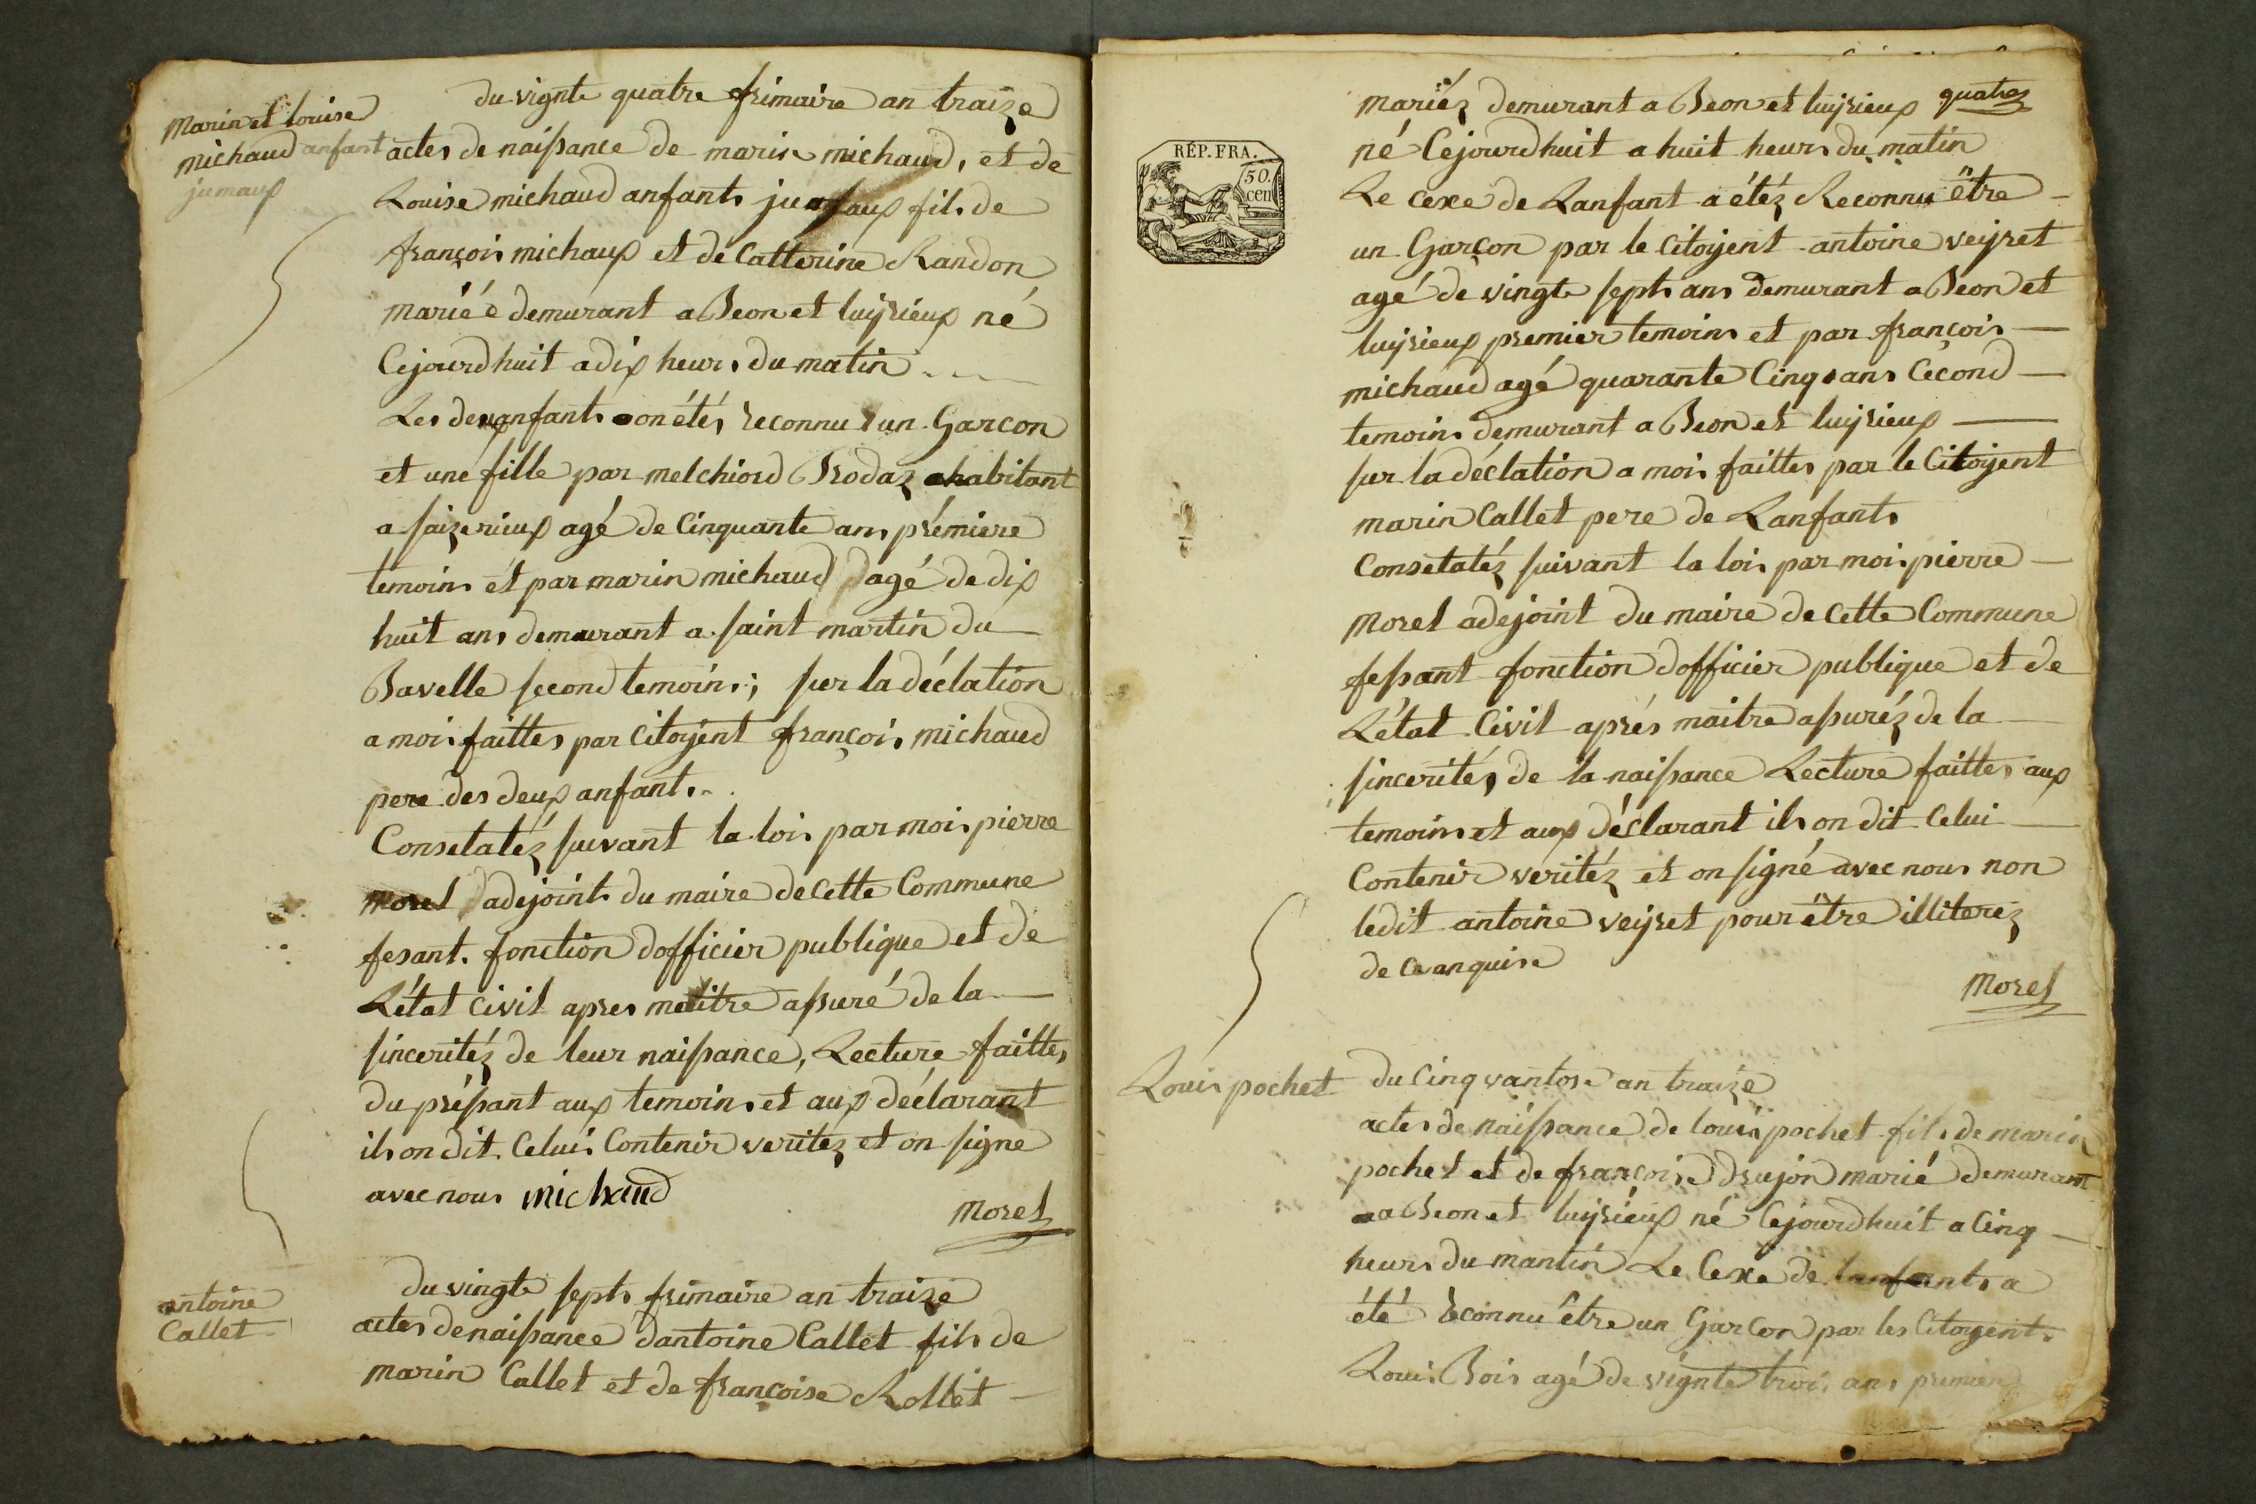 Marin et louise
michaud anfant
jumaux
du vignte quatre frimaire an traize
actes de naissance de marin michaud, et de
Louise michaud anfants jumaux fils de
françois michaux et de Catterine Randon
mariéé demurant a Beon et luyrieux né
Cejourdhuit a dix heurs du matin
Les deux anfants on étés reconnu un Garcon
et une fille par melchiord Brodaz habitant
a saizerieux agé de Cinquante ans prémiere
temoins ét par marin michaud dagé de dix
huit ans demeurant a saint martin du
Bavelle second temoins; sur la déclation
a mois faittes par Citoyent françois michaud
pere des deux anfants.
Consetatéz suivant la lois par mois pierre
morel dadejoints du maire de cette Commune
fesant fonction dofficier publique et de
Létat civil apres maitre assuré de la
sinceritéz de leur naissance, Lecture faittes
du préssant aux temoins et aux déclarant
ils on dit Celui Contenir veritez et on signe
avec nous michaud
Morel
antoine
Callet
du vingte septs frimaire an traize
actes de naissance dantoine Callet fils de
marin Callet et de françoise Rollet
quatres
mariéz demurant a Beon et luyrieux
né Cejourdhuit a huit heurs du matin
Le cexe de Lanfant a étéz Reconnu être
un Garçon par le Citoyent antoine veyret
agé de vingte septs ans demurant a Beon et
luyrieux premier temoins et par françois
michaud agé quarante Cinq ans Cécond
temoins demurant a Beon et luyrieux
sur la déclation a mois faittes par le Citoyent
marin Callet pere de Lanfants
Consetatéz suivant la lois par mois pierre
Morel adejoint du maire de Cette Commune
fessant fonction dofficier publique et de
Létat Civil aprés maitre assuréz de la
sincerités de la naissance Lecture faittes aux
temoins et aux déclarant ils on dit Celui
Contenir veritéz et on signé avec nous non
ledit antoine veyret pour être illiterez
de ce anquise
Morel
RÉP. FRA.
50.
cen
Louis pochet
du Cinq vantose an traize
actes de naissance de louis pochet fils de marin
pochet et de françoise drujon marié demurant
a Beon et luyrieux né Cejourdhuit a Cinq
heurs du mantin Le Cexe de lanfants a
été reconnu être un Garcon par les Citoyents
Louis Bois agé de vignte trois ans premier